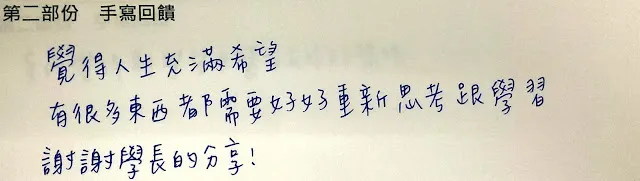 第二部份 手寫回饋
覺得人生充滿希望
有很多東西都需要好好重新思考跟學習
謝謝學長的分享!